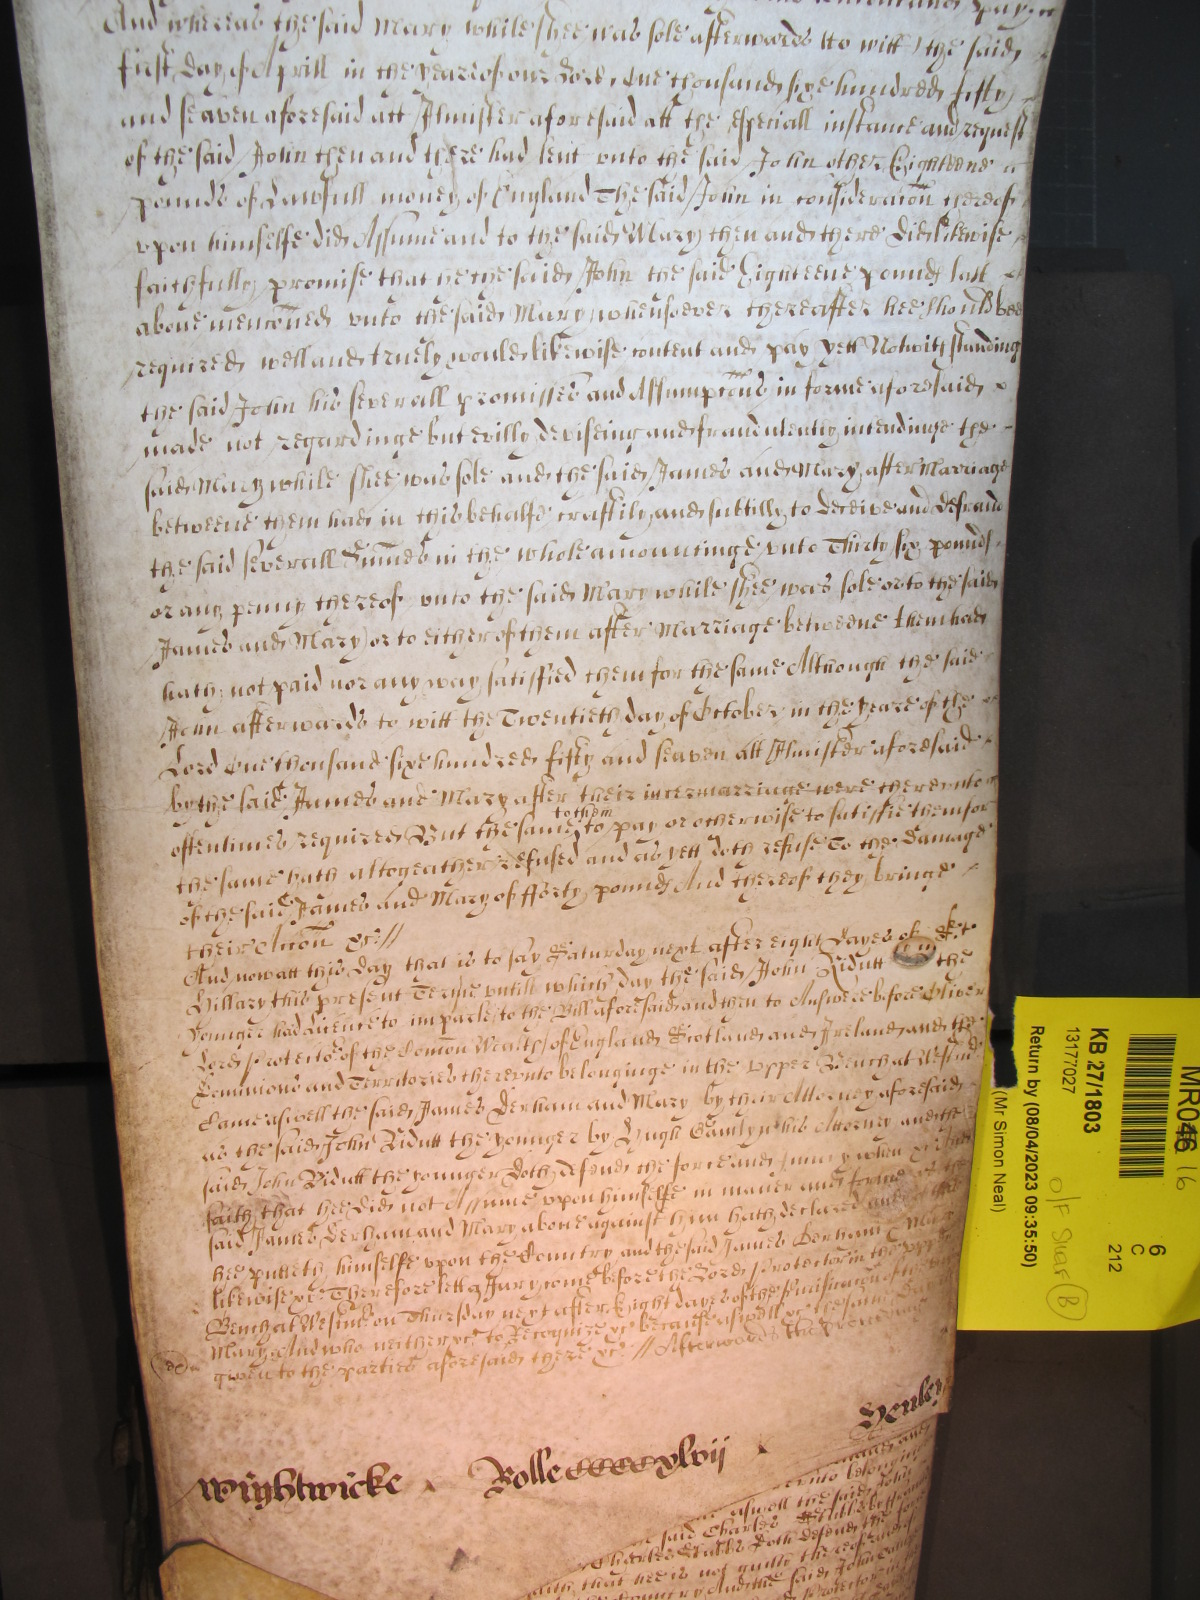 And whereas the said Mary while shee was sole afterwards (to witt) the said
first day of Aprill in the yeare of our Lord One thousand sixe hundred fifty
and seaven aforesaid att Ilmister aforesaid att the especiall instance and request
of the said John then and there had lent unto the said John other Eighteene
pounds of Lawfull money of England The said John in consideracon thereof
upon himselfe did Assume and to the said Mary then and there did likewise
faithfully promise that he the said John the said Eighteene pounds last
above menconed unto the said Mary whensoever thereafter hee should bee
required well and truely would likewise content and pay yett Notwithstanding
the said John his severall promisses and Assumpcons in forme aforesaid
made not regardinge but evilly deviseing and fraudulently intendinge the
said Mary while shee was sole and the said James and Mary after Marriage
betweene them had in this behalfe craftily and subtilly to deceive and defraud
the said severall Summes in the whole amountinge unto Thirty six pounds
or any penny thereof unto the said Mary while shee was sole or to the said
James and Mary or to either of them after Marriage betweene them had
hath not paid nor any way satisffied them for the same Although the said
John afterwards to witt the Twentieth day of October in the yeare of the
Lord One thousand sixe hundred fifty and seaven att Ilmister aforesaid
by the said James and Mary after their intermarriage were thereunto
oftentimes required But the same to them to pay or otherwise to satisfie them for
the same hath altogeather refused and as yett doth refuse To the Damage
of the said James and Mary of fforty pounds And thereof they bringe
their Accon &c //
And now att this day that is to say Saturday next after eight dayes of St
Hillary this present Terme untill which day the said John Ridutt the
younger had licence to imparle to the Bill aforesaid and then to Answere before Oliver
Lord Protector of the Comon Wealth of England Scotland and Ireland and the
Dominions and Territories thereunto belonginge in the upper Bench at Westmr
Came aswell the said James Derham and Mary by their Attorney aforesaid
as the said John Ridutt the younger by Hugh Gamlyn his Attorney and the
said John Ridutt the younger doth defend the force and Injury when &c And
saith that hee did not Assume upon himselfe in maner and forme as the
said James Derham and Mary above against him hath declared and of this
hee putteth himselfe upon the Country and the said James Derham & Mary
likewise &c Therefore lett a Jury come before the Lord Protector in the upper
Bench at Westmr on Thursday next after Eight dayes of the Purificacon of the
Mary And who neither &c to Recognize &c because aswell &c the same day is
given to the parties aforesaid there &c // Afterwards the
Wightwicke Rolle ccccxlvij
Henley
unto belonging
aswell the said John
said Charles
Charles doth defend the force
saith that hee is not guilty thereof
Country And the said John
Protector
MR046 16
6
C
212
KB 27/1803
13177027
Return by (08/04/2023 09:35:50)
(Mr Simon Neal)
O/F Shar B